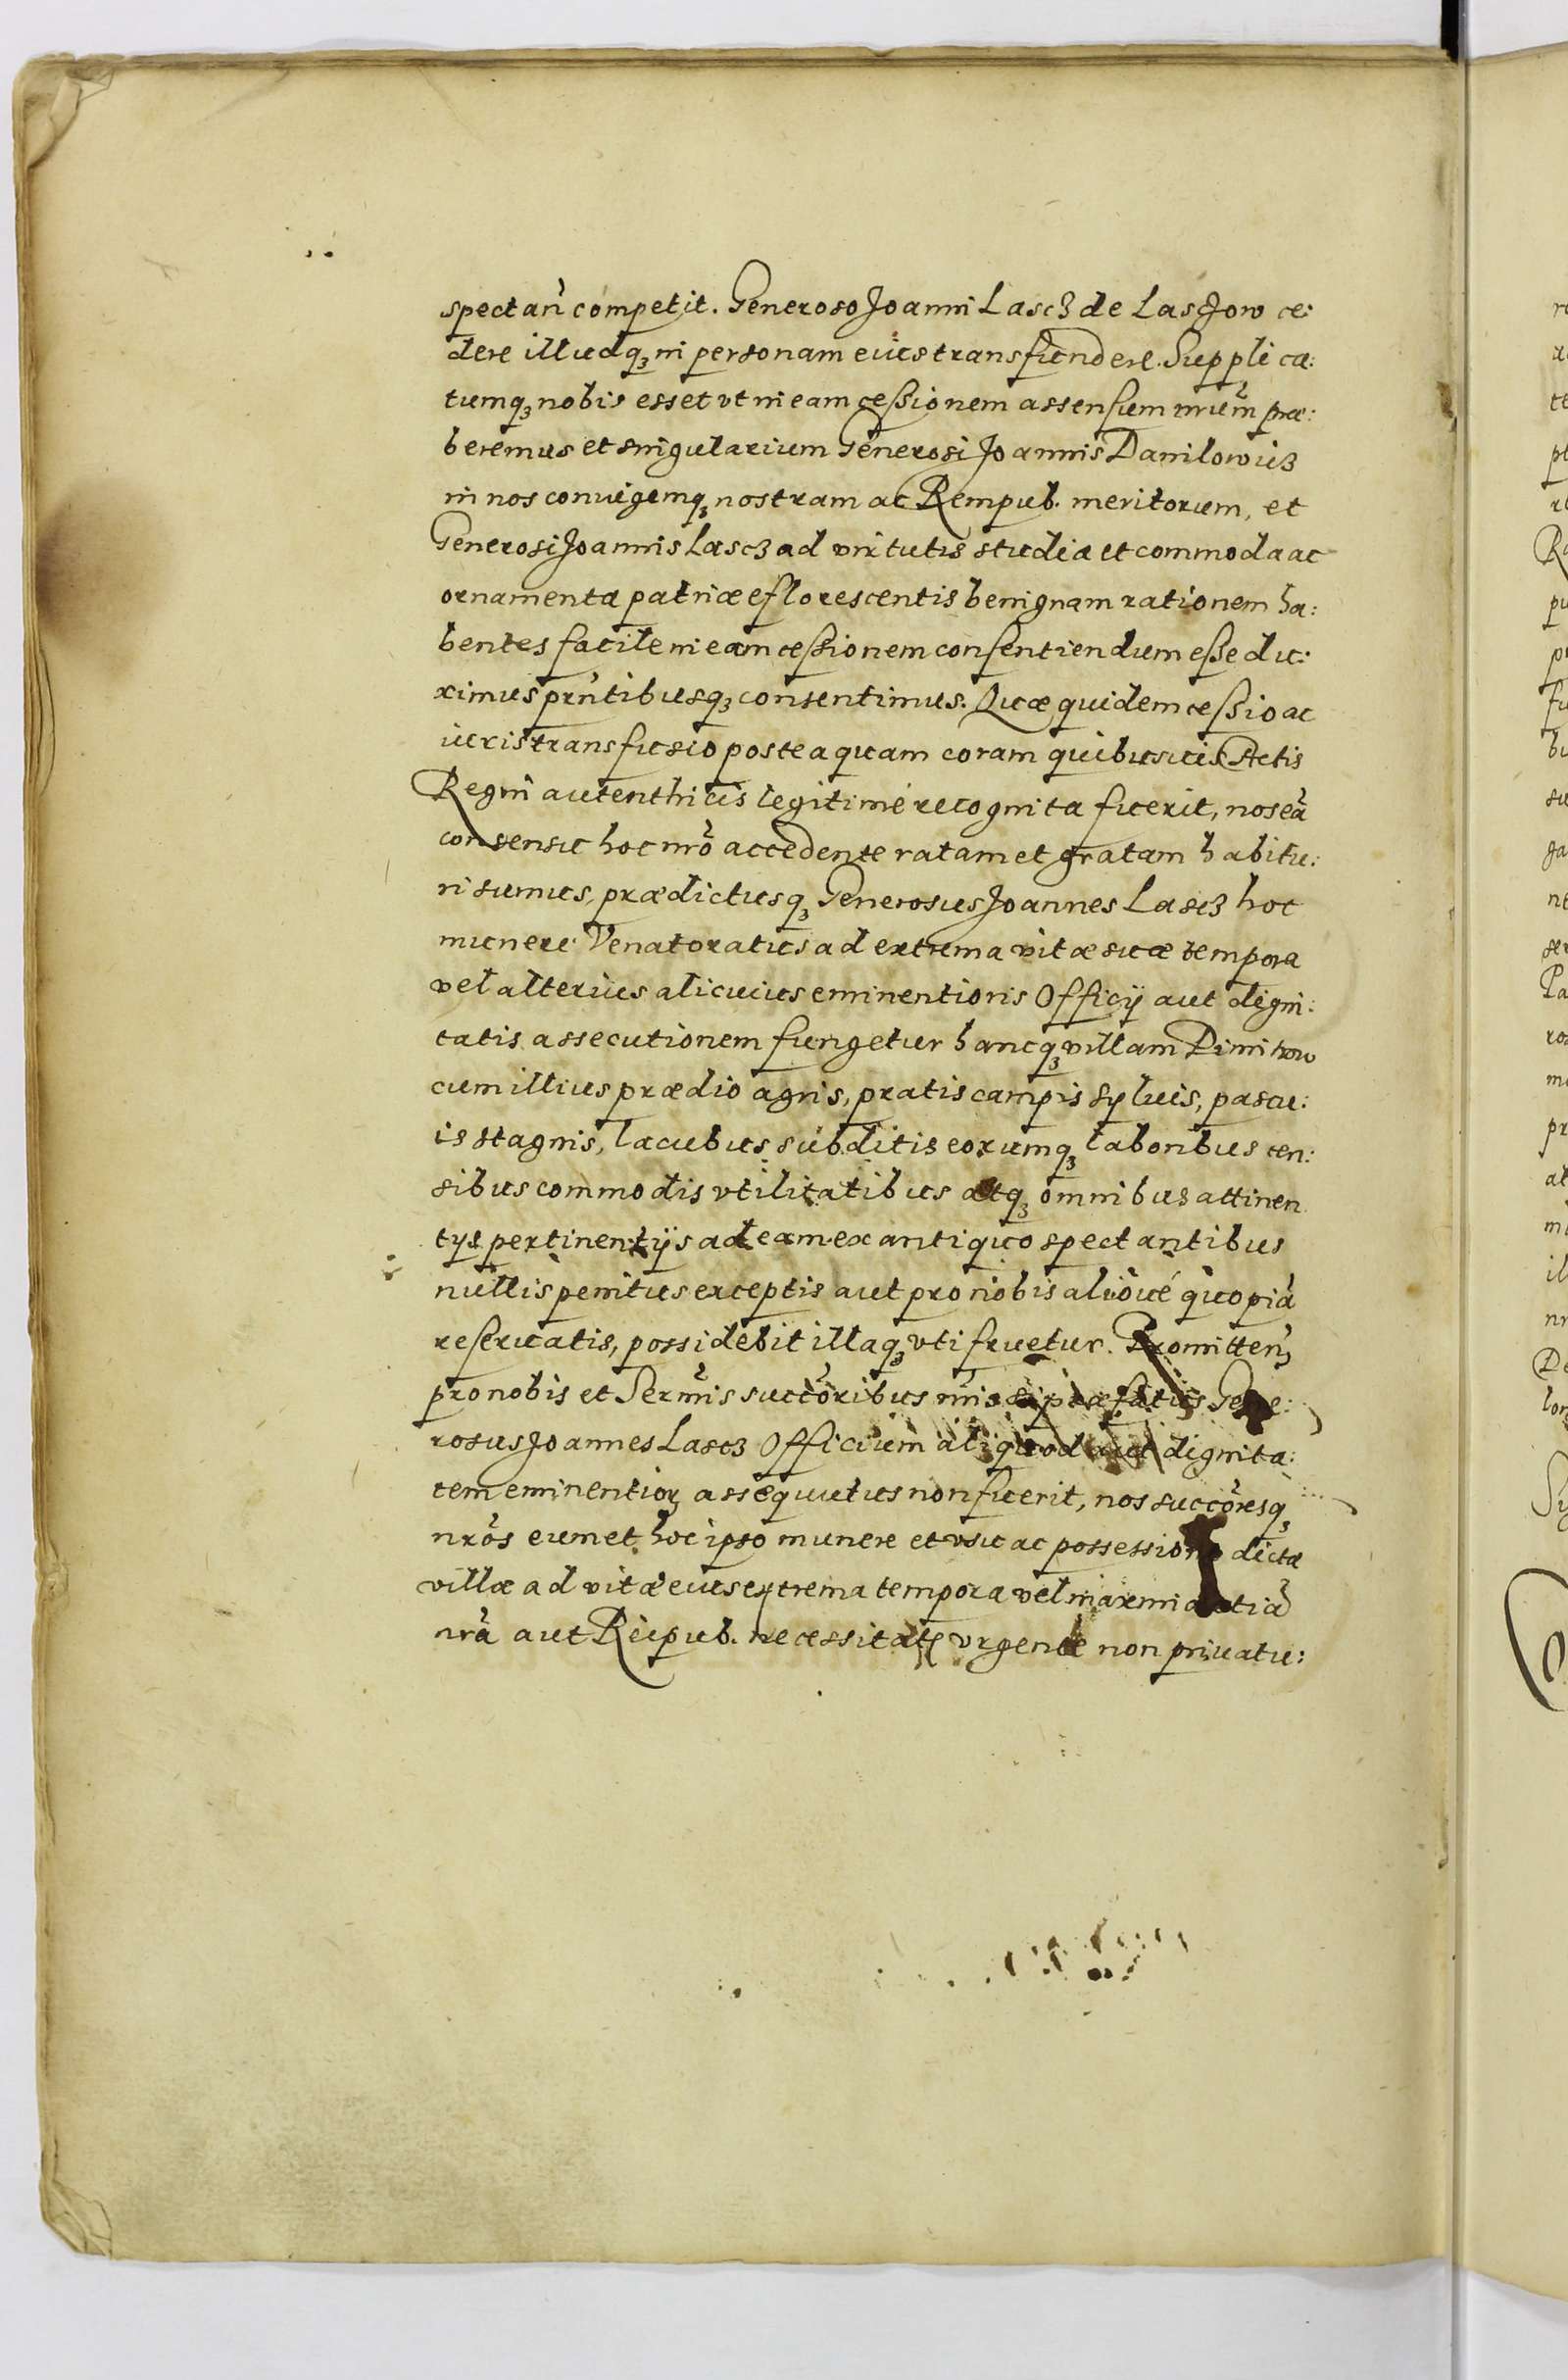 spectañ competit. Generoso Joanni Lascz de Laszow ce:
dere illudq₃ in personam eius transfundere. Supplica:
tumq₃ nobis esset vt in eam cessionem assensum nr̃um præ:
beremus et singularium Generosi Joannis Danilowicz
in nos coniugemq₃ nostram ac Rempub. meritorum, et
Generosi Joannis Lascz ad virtutis studia et commoda ac
ornamenta patriæ eflorescentis benignam rationem ha:
bentes facile in eam cessionem consentiendum esse du:
ximus pr̃ntibusq₃ consentimus. Quæ quidem cessio ac
iuris transfusio posteaquam coram quibusuis Actis
Regni autenthicis legitimè recognita fuerit, nos eã
consensu hoc nr̃o accedente ratam et gratam habitu:
ri sumus, prædictusq₃ Generosus Joannes Lascz hoc
munere Venatoratus ad extrema vitæ suæ tempora
vel alterius alicuius eminentioris Officij aut digni:
tatis assecutionem fungetur hancq₃ villam Dimitrow
cum illius prædio agris, pratis campis syluis, pascu:
is stagnis, lacubus subditis eorumq₃ laboribus cen:
sibus commodis vtilitatibus atq₃ omnibus attinen
tijs pertinentijs ad eam ex antiquo spectantibus
nullis penitus exceptis aut pro nobis aliouè quopiã
reseruatis, possidebit illaq₃ vti fruetur. Promitteñ
pro nobis et Serm̃is succõribus nr̃is si præfatus Gene:
rosus Joannes Lascz Officium aliquod aut dignita:
tem eminentior₃ assequutus non fuerit, nos succõresq₃
nr̃os eum et hoc ipso munere et vsu ac possessione dictæ
villæ ad vitæ eius extrema tempora vel maxima etiã
nr̃a aut Reipub. necessitate vrgente non priuatu: